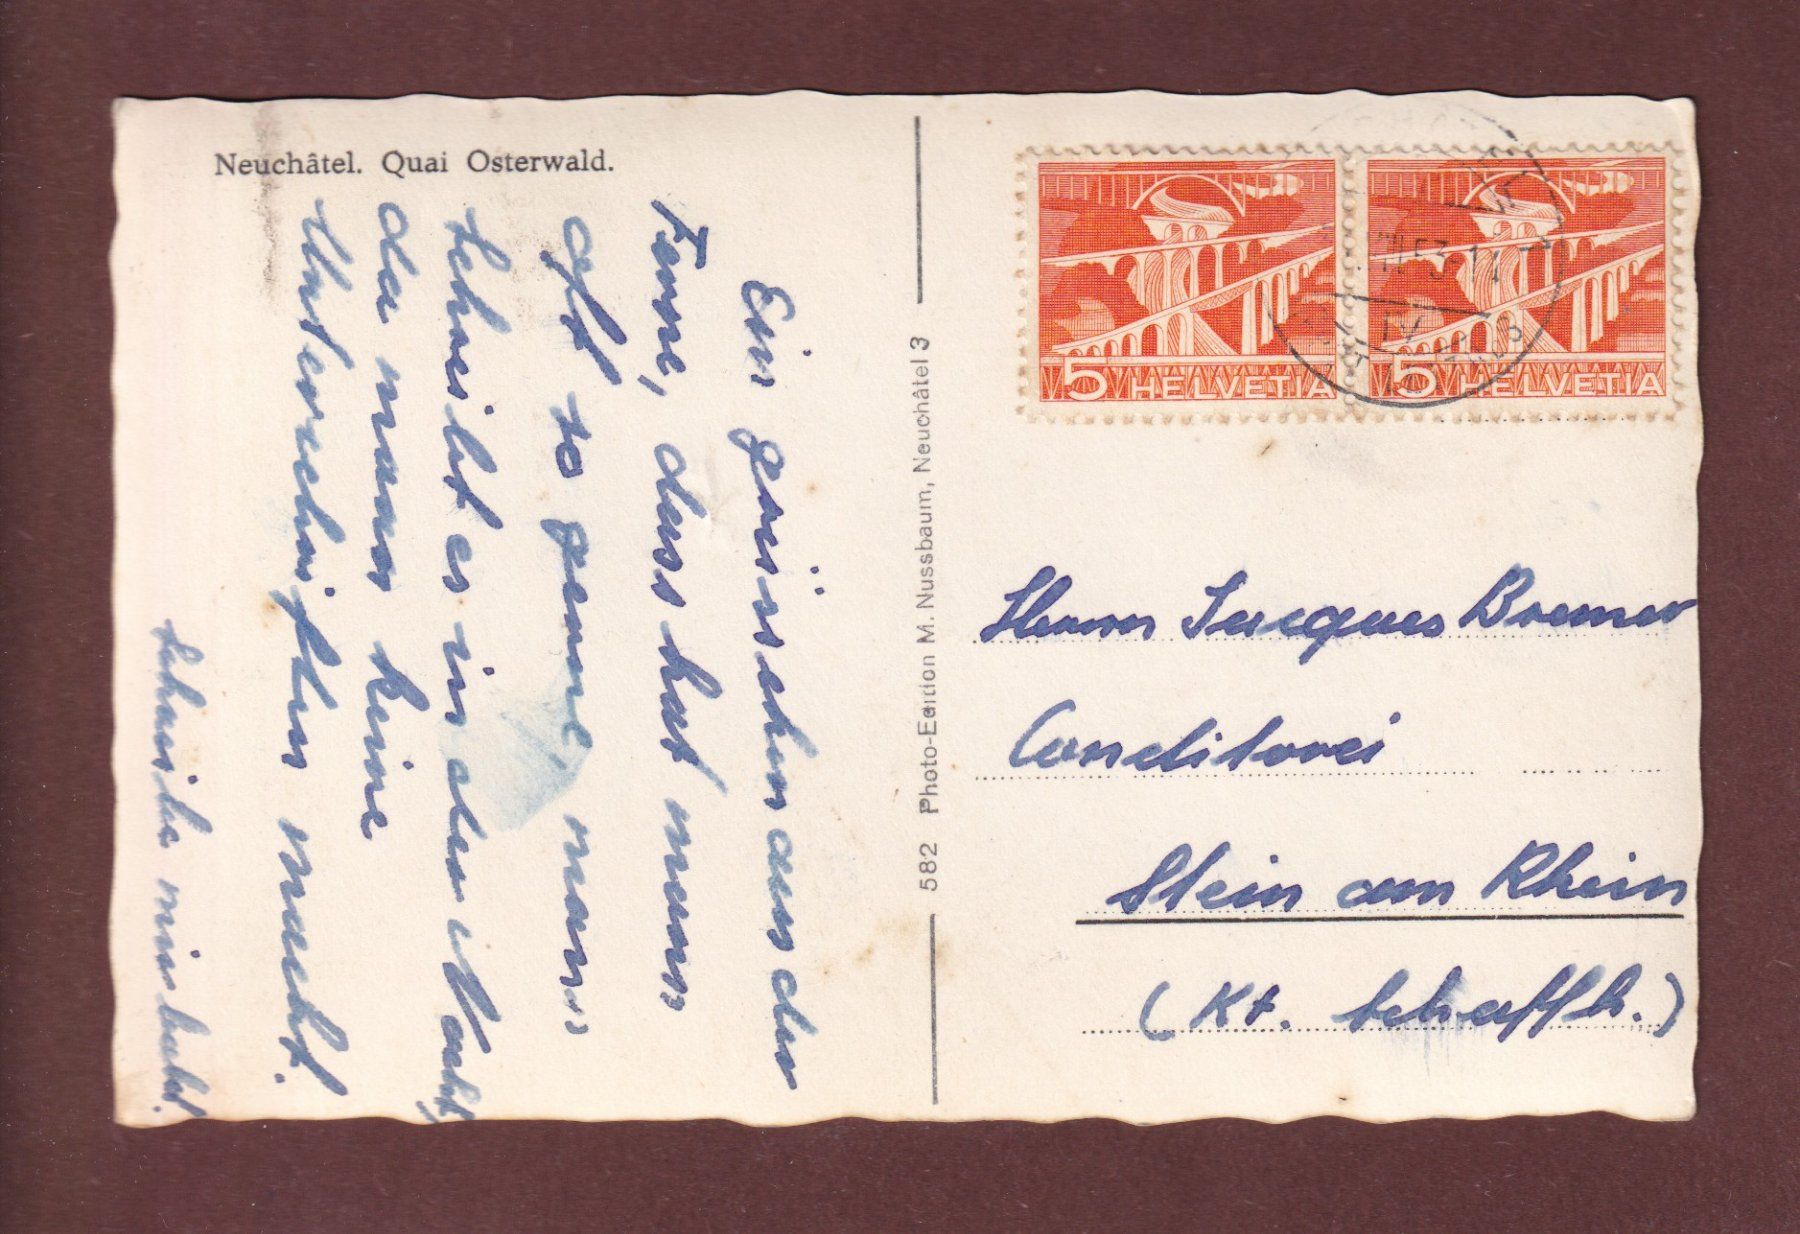 Neuchâtel. Quai Osterwald.
Ein grüsschen aus der
Ferne, dass hat mann
oft so gerne, mann
schreibt es in der Nacht,
da mann keine
Unterschriften macht.
582 Photo-Edition M. Nussbaum, Neuchâtel 3
5 HELVETIA
5 HELVETIA
Herrn Jacques Bremer
Conditorei
Stein am Rhein
(Kt. Schaffh.)